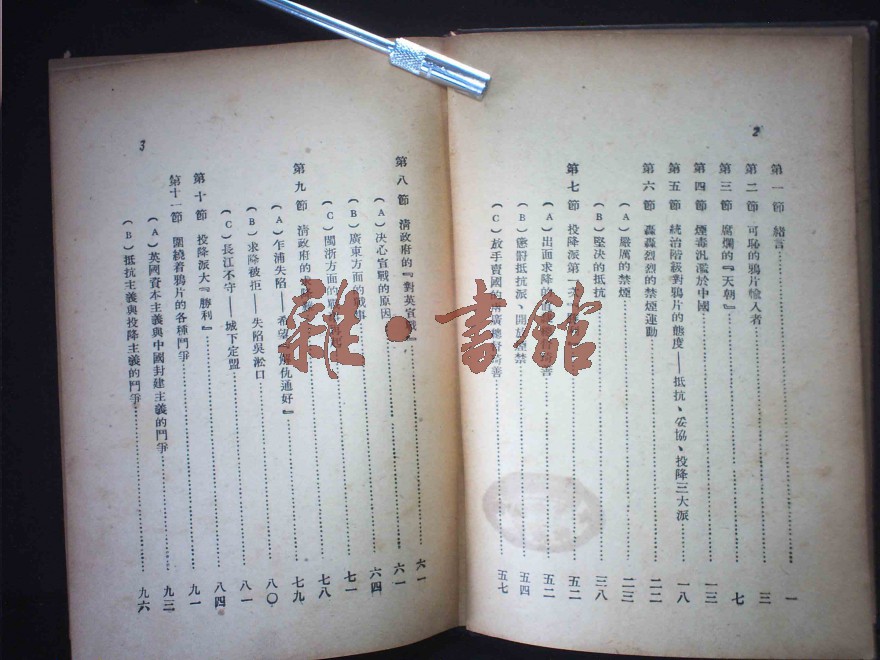 2
第一節 緒言 一
第二節 可恥的鴉片輸入者 三
第三節 腐爛的『天朝』 七
第四節 煙毒汎濫於中國 一三
第五節 統治階級對鴉片的態度——抵抗、妥協、投降三大派 一八
第六節 轟轟烈烈的禁煙運動 二二
（A）嚴厲的禁煙 二三
（B）堅決的抵抗 三八
第七節 投降派第一次 五二
（A）出面求降的 善 五二
（B）懲辦抵抗派、開 煙禁 五四
（C）放手賣國的 廣總 善 五七
3
第八節 清政府的『對英宣戰』 六一
（A）決心宣戰的原因 六一
（B）廣東方面的戰事 六四
（C）閩浙方面的 七一
第九節 清政府的求降 七八
（A）乍浦失陷——希望 仇通好』 七九
（B）求降被拒——失陷吳淞口 八〇
（C）長江不守——城下定盟 八一
第十節 投降派大『勝利』 八四
第十一節 圍繞着鴉片的各種鬥爭 九一
（A）英國資本主義與中國封建主義的鬥爭 九三
（B）抵抗主義與投降主義的鬥爭 九六
雜·書館